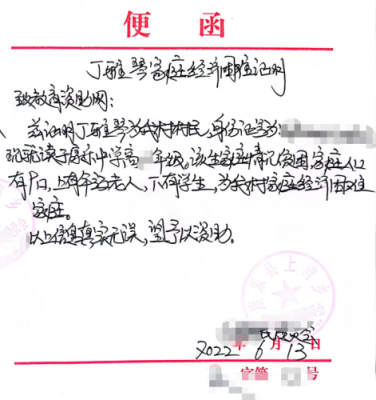 便函
丁雅琴家庭经济困难证明
致教育资助网：
兹证明丁雅琴为我村村民，身份证号为：
现就读于 中学高 年级。该生家庭情况 家庭人口
有 口，上有年迈老人，下有学生，为我村家庭经济困难
家庭。
以上信息真实无误，望予以资助。
村民委会
2022年6月13日
字第 号